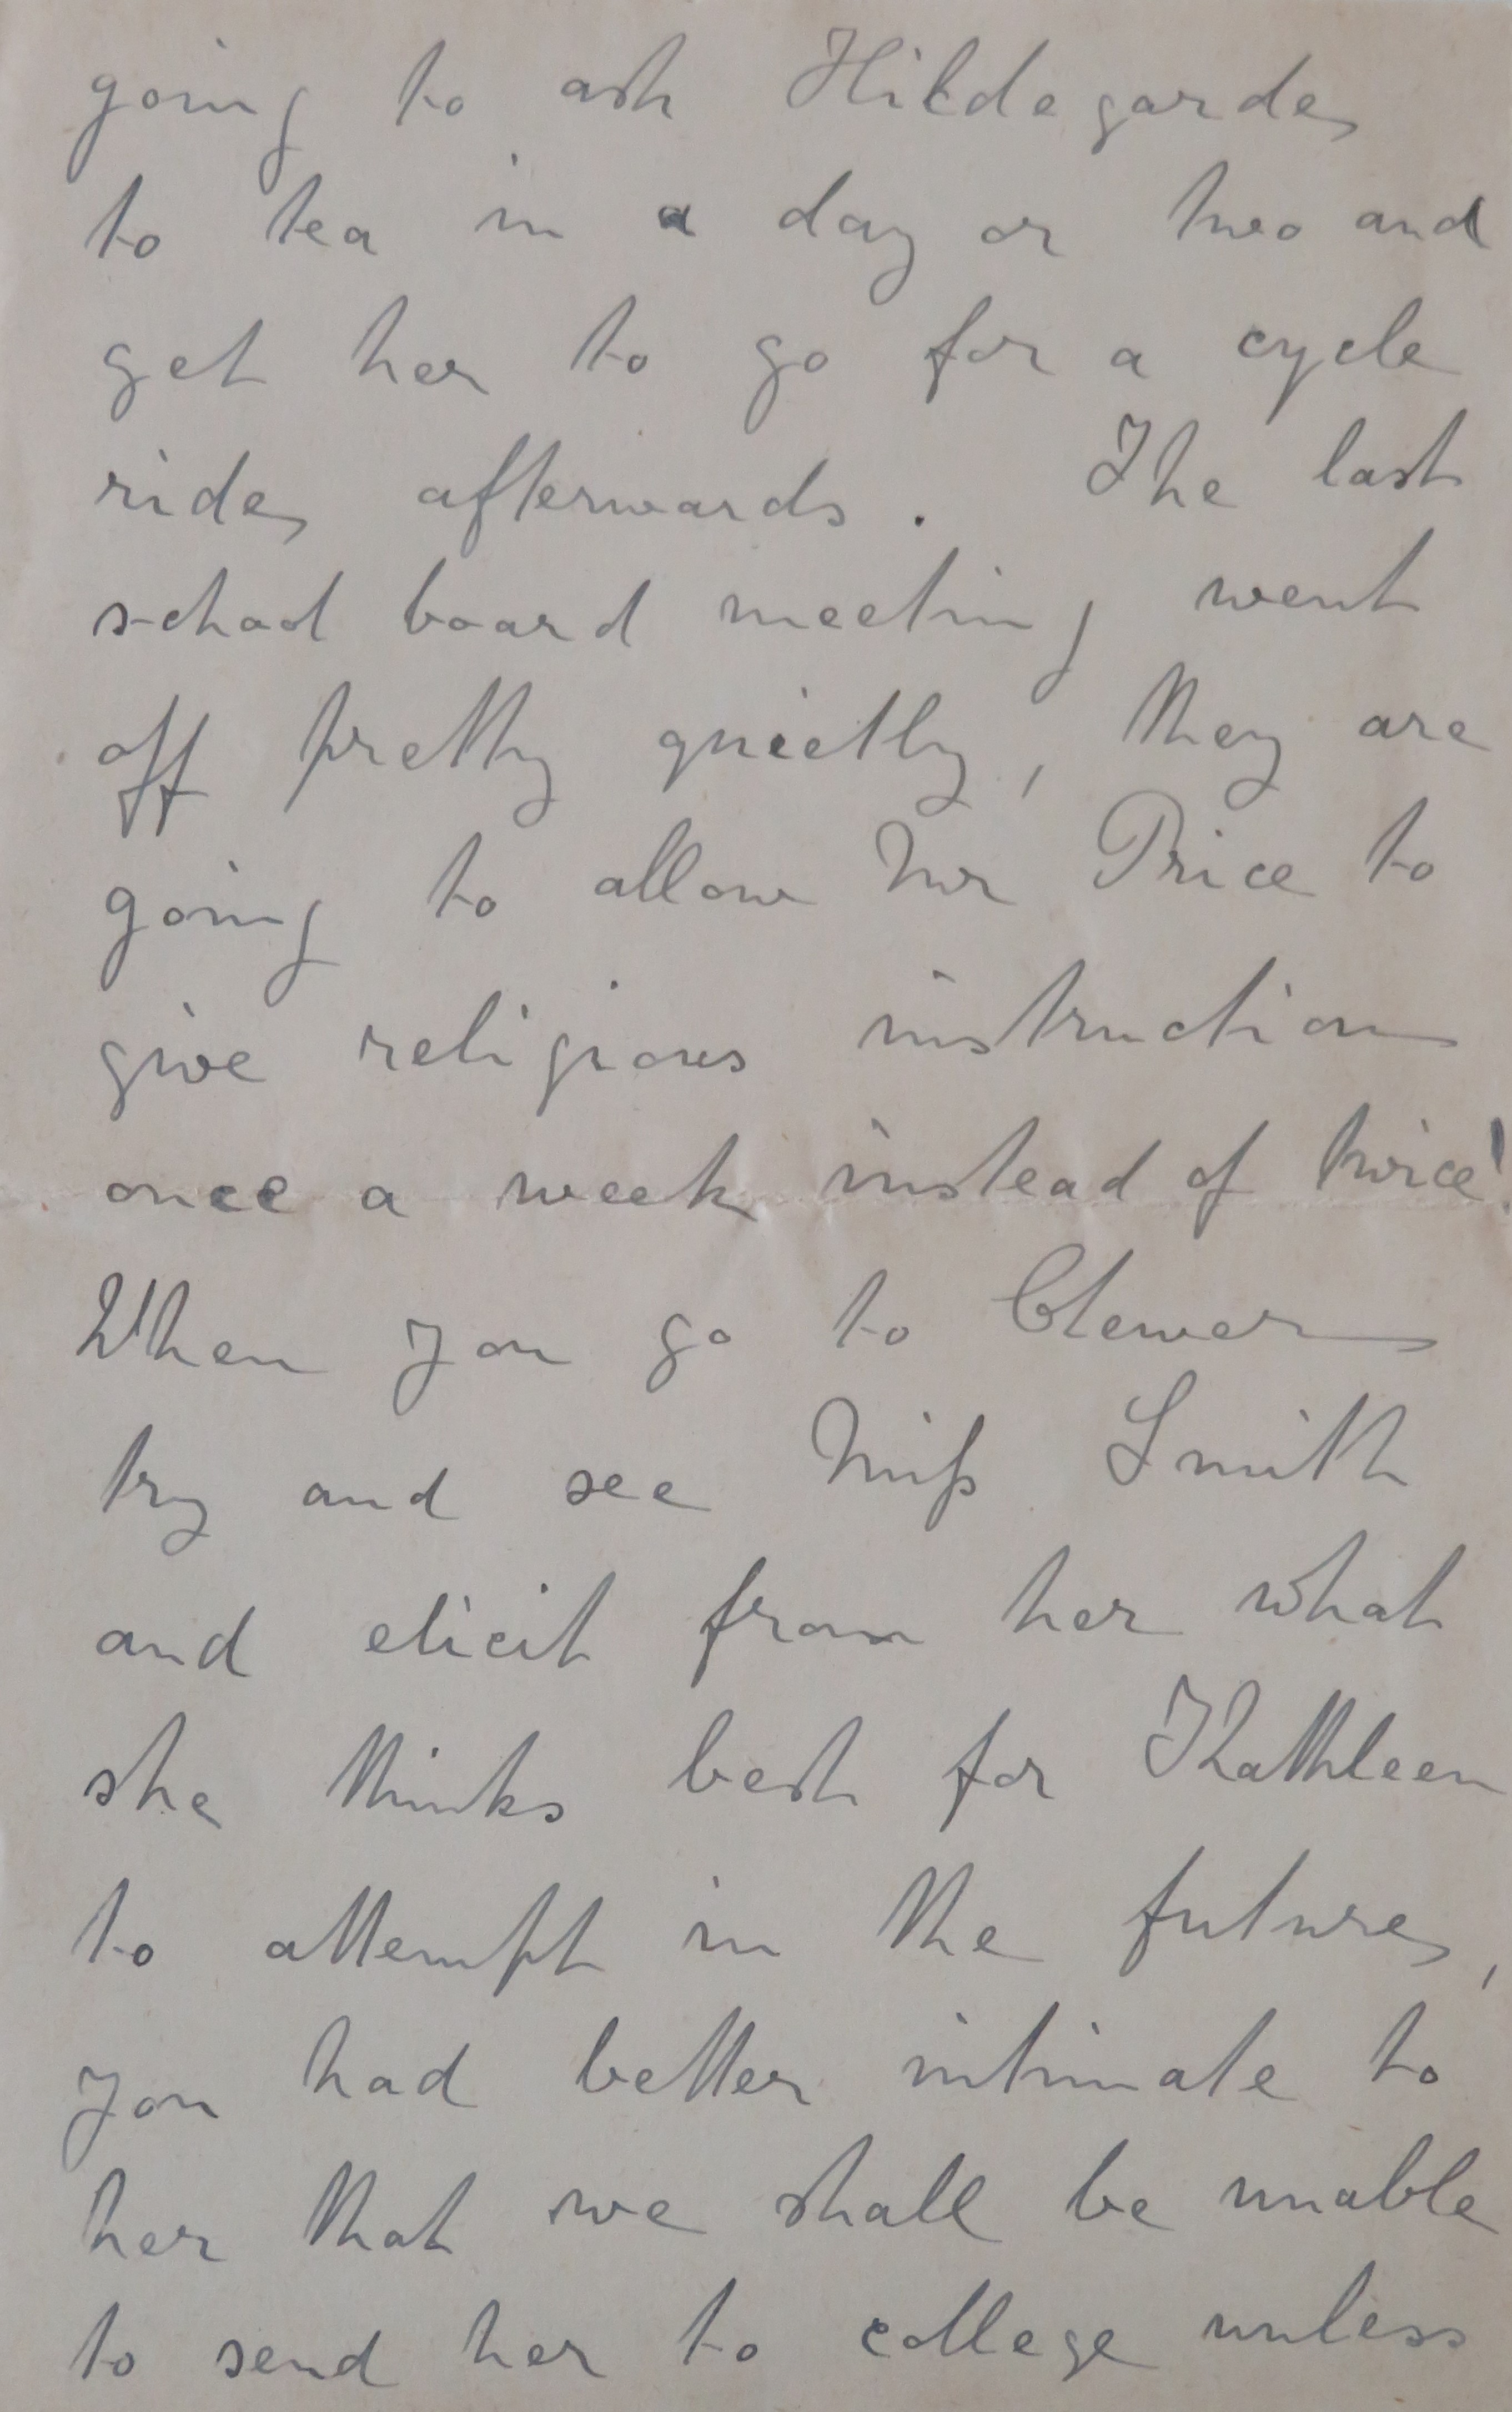 going to ask Hildegarde
to tea in a day or two and
get her to go for a cycle
ride afterwards. The last
school board meeting went
off pretty quietly, they are
going to allow Mr Price to
give religious instruction
once a week instead of twice!
When you go to Clewer
try and see Miss Smith
and elicit from her what
she thinks best for Kathleen
to attempt in the future,
you had better intimate to
her that we shall be unable
to send her to college unless